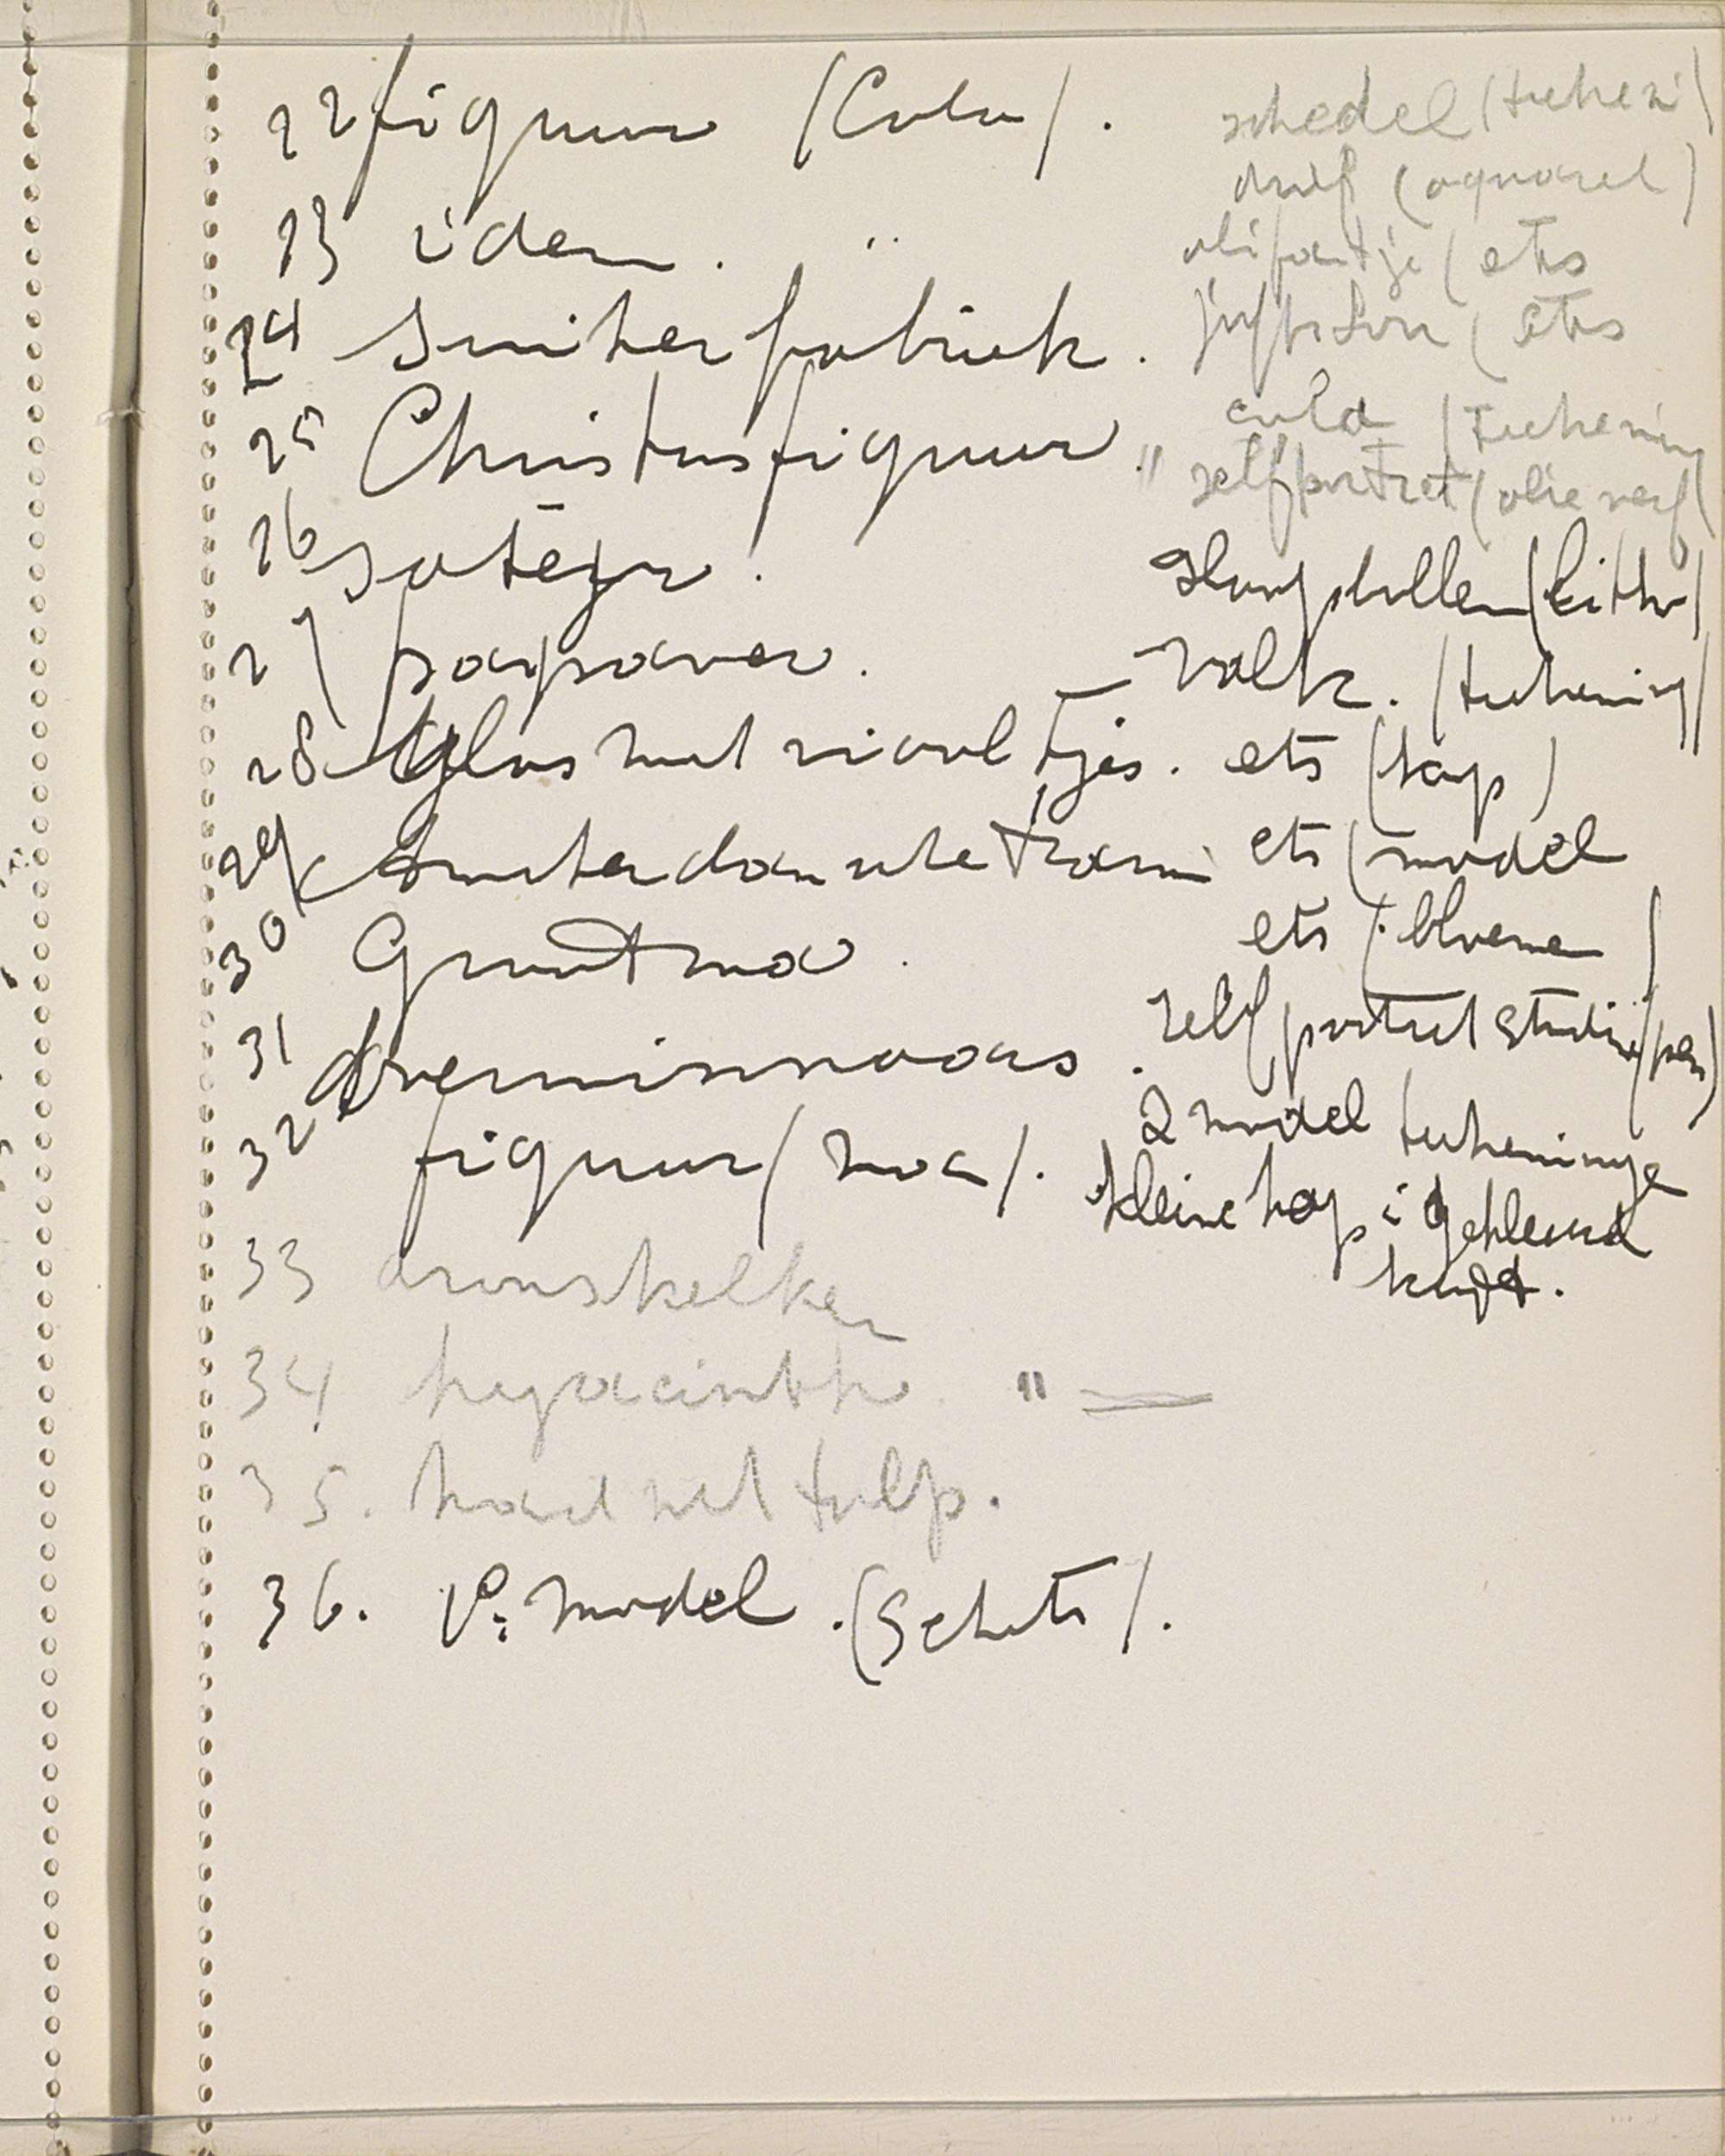 22 figuur (Cola).
23 idem. "
24 Suikerfabriek.
25 Christusfiguur. "
26 satéyr.
27 papaver.
28 Glas met viooltjes.
29 Amsterdamschetram
30 Grootma.
31 doeminnoors.
32 figuur (Moa).
33 aronskelken
34 hyacinth. "
35. kad met tulp.
36. Po: model. (Schets).
schedel (teken)
druif (aquarel)
olifantje (ets
juffrtoren (ets
cola (teekening
zelfportret (olieverf)
slaapbollen (litho)
— Valk. (teekening)
ets (kop)
ets (model
ets (bloeme)
zelfportret studie (pen)
2 model teekeninge
kleine kop i gekleurd
krijt.